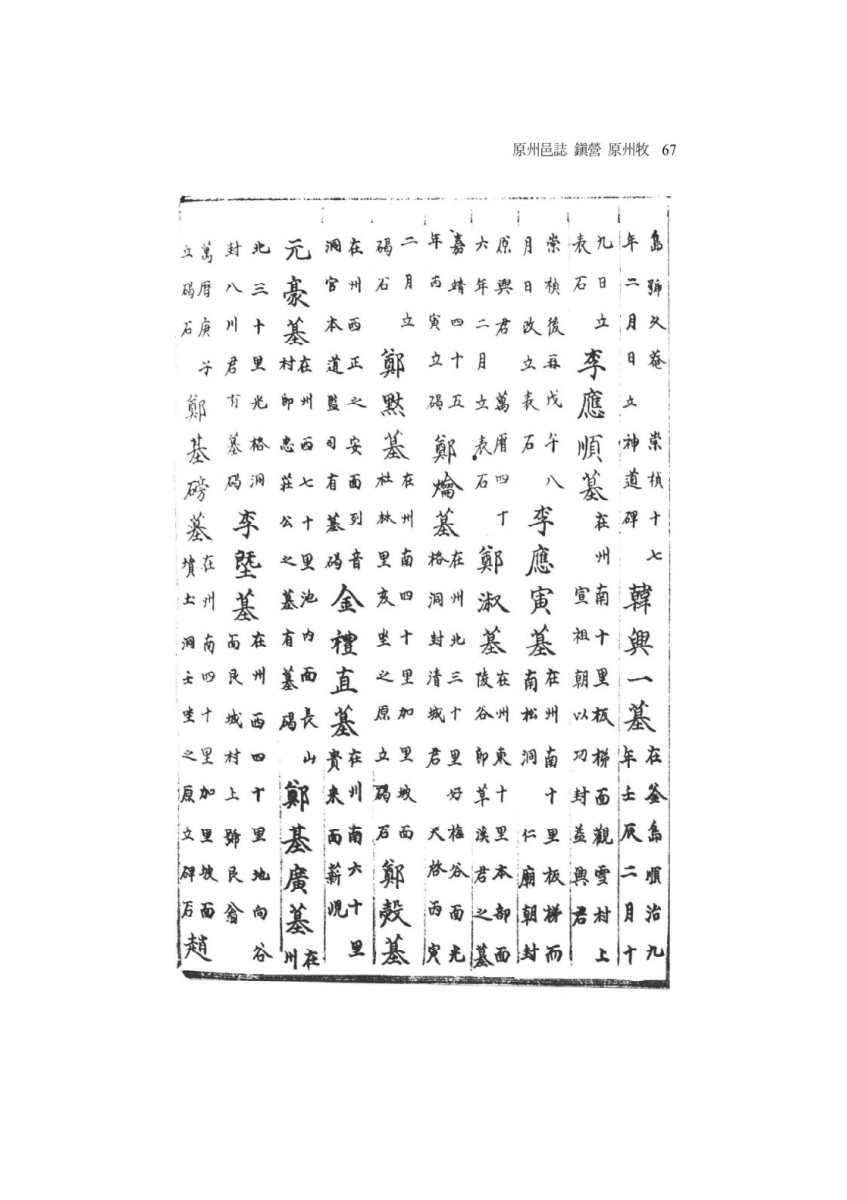 原州邑誌 鎭營 原州牧 67
島號久菴 崇禎十七年二月日立神道碑 韓興一墓 在釜島順治九年壬辰二月十
九日立表石 李應順墓 在州南十里板梯面觀雪村上宣祖朝以功封益興君
崇禎後再戊午八月日改立表石 李應寅墓 在州南十里板梯面南松洞 仁廟朝封
原興君 萬曆四十六年二月立表石 鄭淑墓 在州東十里本部面陵谷卽草溪君之墓
嘉靖四十五年丙寅立碣 鄭爚墓 在州北三十里好梅谷面光格洞封清城君 天啓丙寅
二月立碣石 鄭黙墓 在州南四十里加里坡面社林里亥坐之原立碣石 鄭殼墓
在州西正之安面列音洞官本道監司有墓碣 金禮直墓 在州南六十里貴来面薪峴
元豪墓 在州西七十里池內面長山村即忠莊公之墓有墓碣 鄭基廣墓 在州
北三十里光格洞封八川君有墓碣 李塈墓 在州西四十里地向谷面艮城村上號艮翁
萬曆庚子立碣石 鄭基磅墓 在州南四十里加里坡面墳土洞壬坐之原立碑石 趙